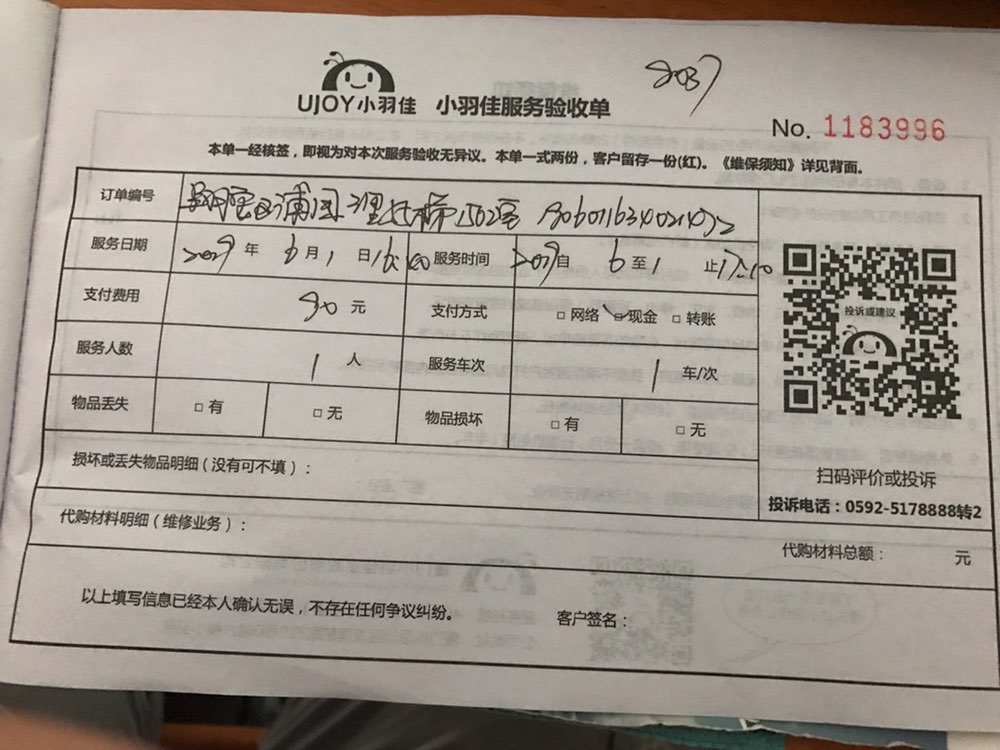 UJOY小羽佳 小羽佳服务验收单
No. 1183996
本单一经核签，即视为对本次服务验收无异议。本单一式两份，客户留存一份(红)。《维保须知》详见背面。
订单编号
服务日期 年 6月1日 服务时间 自 6至1 止
支付费用 80元 支付方式 □网络 □现金 □转账
服务人数 1人 服务车次 1车/次
物品丢失 □有 □无 物品损坏 □有 □无
投诉或建议
损坏或丢失物品明细（没有可不填）：
扫码评价或投诉
投诉电话：0592-5178888转2
代购材料明细（维修业务）：
代购材料总额： 元
以上填写信息已经本人确认无误，不存在任何争议纠纷。 客户签名：